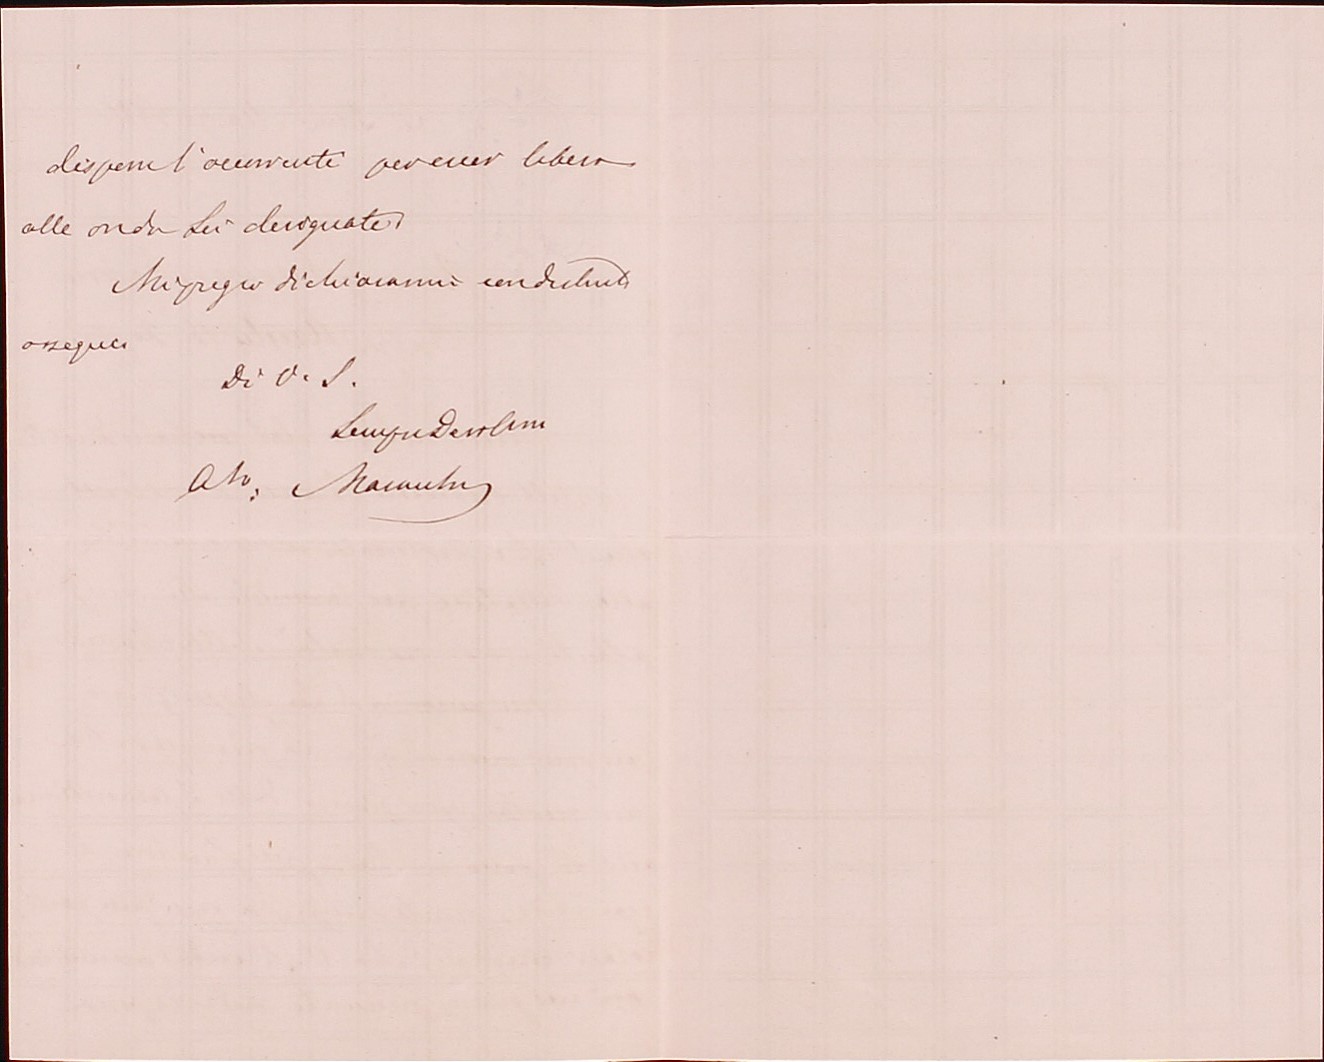 disporre l'occorrente per esser libero
alle ore da Lei designate.
Mi pregio dichiararmi con distinti
ossequi
Di V. S.
Sempre Devotissimo